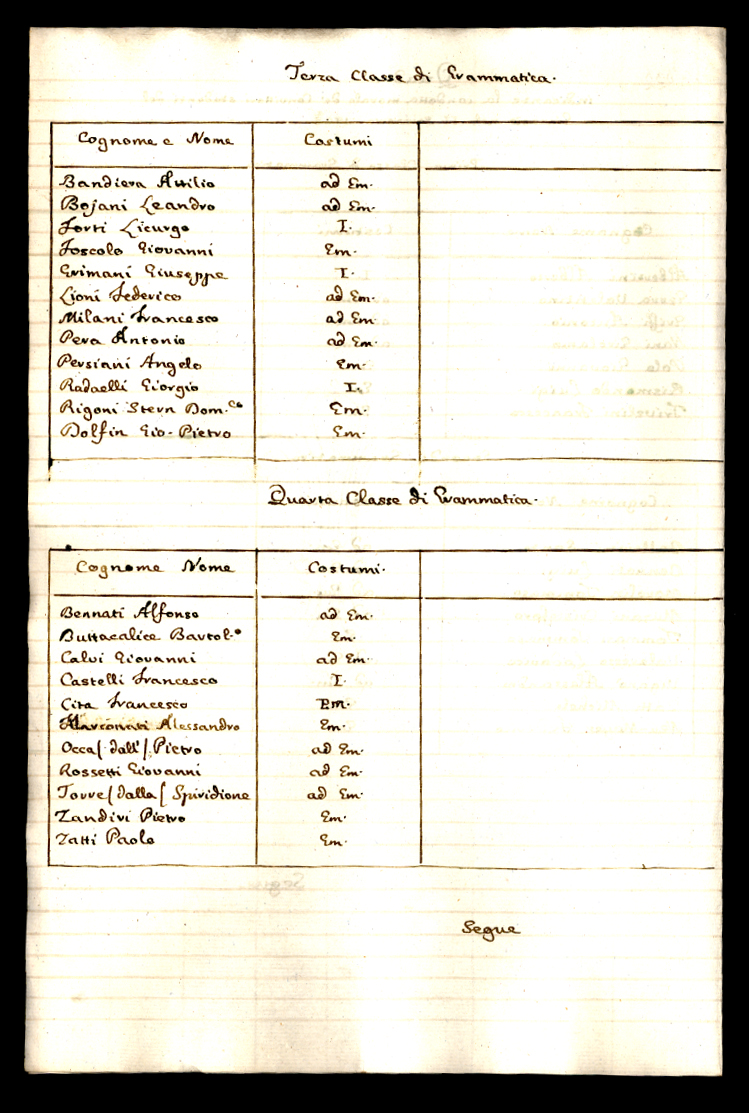 Terza Classe di Grammatica.
Cognome e Nome Costumi
Bandiera Attilio ad Em.
Bojani Leandro ad Em.
Forti Licurgo I.
Foscolo Giovanni Em.
Grimani Giuseppe I.
Lioni Federico ad Em.
Milani Francesco ad Em.
Pera Antonio ad Em.
Persiani Angelo Em.
Radaelli Giorgio I.
Rigoni Stern Dom.co Em.
Dolfin Gio. Pietro Em.
Quarta Classe di Grammatica.
Cognome Nome Costumi.
Bennati Alfonso ad Em.
Buttacalice Bartol.o Em.
Calvi Giovanni ad Em.
Castelli Francesco I.
Cita Francesco Em.
Marconati Alessandro Em.
Occa/ dall'/ Pietro ad Em.
Rossetti Giovanni ad Em.
Torre/ dalla/ Spiridione ad Em.
Zandiri Pietro Em.
Zatti Paolo Em.
Segue